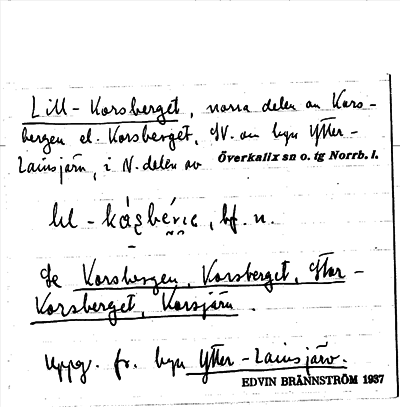 Lill-Korsberget, norra delen av Kors-
bergen el. Korsberget, SV. om byn Ytter-
Lainsjärv, i N. delen av Överkalix sn o. tg Norrb. l.
lıl-kásbérıc, bf. n.
Se Korsbergen, Korsberget, Stor-
Korsberget, Korsjärn.
Uppg. fr. byn Ytter-Lainsjärv.
EDVIN BRÄNNSTRÖM 1937